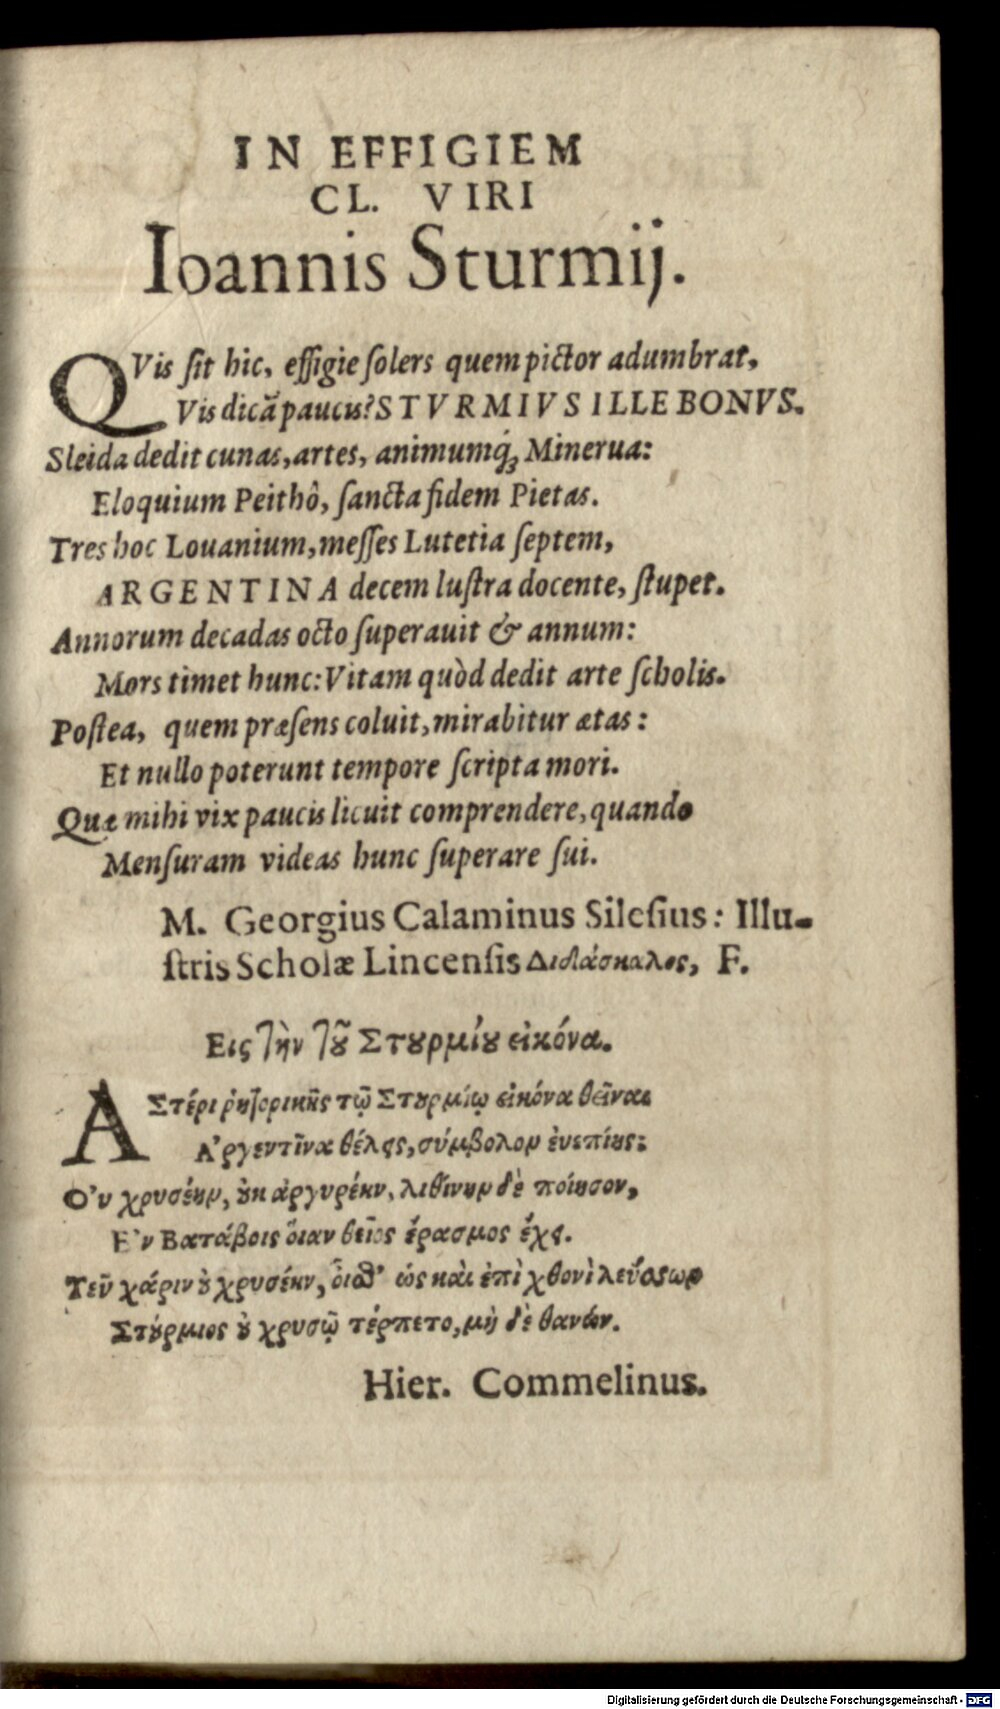 IN EFFIGIEM
CL. VIRI
Ioannis Sturmij.
QVis ſit hic, effigie ſolers quem pictor adumbrat,
Vis dicā paucis? STVRMIVS ILLE BONVS.
Sleida dedit cunas, artes, animumq́; Minerua:
Eloquium Peithô, ſancta fidem Pietas.
Tres hoc Louanium, meſſes Lutetia ſeptem,
ARGENTINA decem luſtra docente, ſtupet.
Annorum decadas octo ſuperauit & annum:
Mors timet hunc: Vitam quòd dedit arte ſcholis.
Poſtea, quem præſens coluit, mirabitur ætas:
Et nullo poterunt tempore ſcripta mori.
Quæ mihi vix paucis licuit comprendere, quando
Menſuram videas hunc ſuperare ſui.
M. Georgius Calaminus Sileſius: Illu-
ſtris Scholæ Lincenſis Διδάσκαλος, F.
Εις τὴν τȣ͂ Στȣρμίȣ εἰκόνα.
ΑΣτέρι ῥητορικῆς τῷ Στȣρμίῳ εἰκόνα θεῖναι
Ἀργεντῖνα θέλεις, σύμβολον ἐυεπίης:
Οὐ χρυσέην, ȣκ ἀργυρέην, λιθίνην δὲ ποίησον,
Ἐν Βατάβοις ὅιαν θεῖος ἔρασμος ἔχει.
Τεῦ χάριν ȣ χρυσέην, ὁιαθ' ὡς καὶ ἐπὶ χθονὶ λεύσσων
Στȣρμιος ȣ χρυσῷ τέρπετο, μὴ δὲ θανών.
Hier. Commelinus.
Digitalisierung gefördert durch die Deutsche Forschungsgemeinschaft - DFG